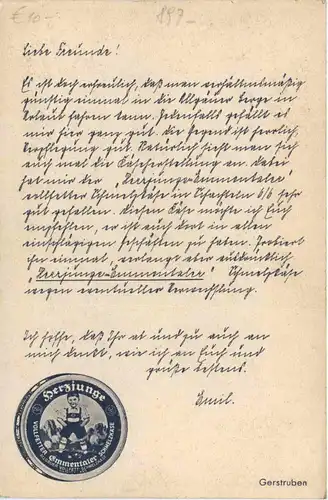 €10.- 897-
Liebe Freunde!
Es ist doch erfreulich, daß man verhältnismäßig
günstig einmal in die Allgäuer Berge in
Urlaub fahren kann. Jedenfalls gefällt es
mir hier ganz gut. Die Gegend ist herrlich,
Verpflegung gut. Natürlich sieht man sich
auch mal die Käseherstellung an. Dabei
hat mir der „Herzjunge-Emmentaler"
vollfetter Schmelzkäse in Schachteln 6/6 sehr
gut gefallen. Diesen Käse möchte ich Euch
empfehlen, er ist auch dort in allen
einschlägigen Geschäften zu haben. Probiert
ihn einmal, verlangt aber ausdrücklich
„Herzjunge-Emmentaler" Schmelzkäse
wegen eventueller Verwechslung.
Ich hoffe, daß Ihr ab und zu auch an
mich denkt, wie ich an Euch und
grüße bestens.
Emil.
Herzjunge
VOLLFETTER Emmentaler SCHMELZKÄSE
Gerstruben